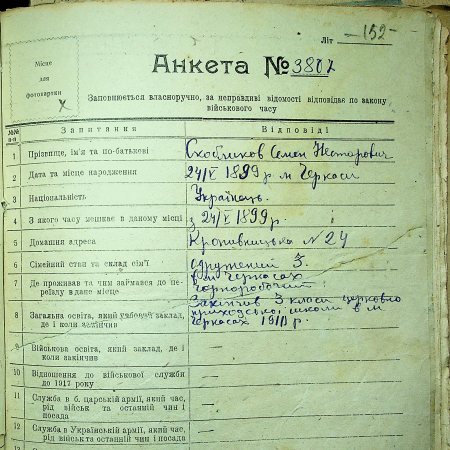 Літ -152-
Місце
для
фотокартки
Анкета № 3807
Заповнюється власноручно, за неправдиві відомості відповідає по закону
військового часу
№№
п-п
Запитання
Відповіді
1 Прізвище, ім'я та по-батькові Скобликов Семен Несторович
2 Дата та місце народження 24/V 1899 р м Черкаси
3 Національність Українець.
4 З якого часу мешкає в даному місці з 24/V 1899 р.
5 Домашня адреса Кропивницька N 24
6 Сімейний стан та склад сім'ї одружений 3.
7 Де проживав та чим займався до пе-
реїзду в дане місце
в м Черкасах
чорноробочий
8 Загальна освіта, який учбовий заклад,
де і коли закінчив
Закінчив 3 класи церковно
приходської школи в м
Черкасах 1910 р.
9 Військова освіта, який заклад, де і
коли закінчив —
10 Відношення до військової служби
до 1917 року —
11 Служба в б. царській армії, який час,
рід військ та останній чин і
посада —
12 Служба в Українській армії, який час,
рід військ та останній чин і посада —
13